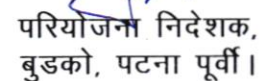 परियोजना निदेशक,
बुडको, पटना पूर्वी।